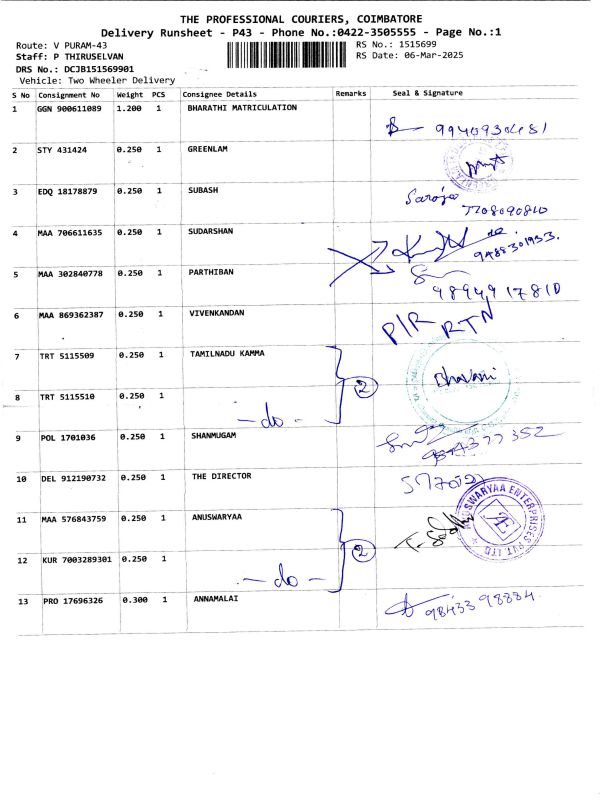 THE PROFESSIONAL COURIERS, COIMBATORE
Delivery Runsheet - P43 - Phone No.:0422-3505555 - Page No.:1
Route: V PURAM-43
RS No.: 1515699
Staff: P THIRUSELVAN
RS Date: 06-Mar-2025
DRS No.: DCJB151569901
Vehicle: Two Wheeler Delivery
S No Consignment No Weight PCS Consignee Details Remarks Seal & Signature
1 GGN 900611089 1.200 1 BHARATHI MATRICULATION
2 STY 431424 0.250 1 GREENLAM
3 EDQ 18178879 0.250 1 SUBASH
Saroja
7708090810
4 MAA 706611635 0.250 1 SUDARSHAN
9488301933.
5 MAA 302840778 0.250 1 PARTHIBAN
9894917810
6 MAA 869362387 0.250 1 VIVENKANDAN
P/R RTN
7 TRT 5115509 0.250 1 TAMILNADU KAMMA
2
Bhavani
8 TRT 5115510 0.250 1
- do -
9 POL 1701036 0.250 1 SHANMUGAM
10 DEL 912190732 0.250 1 THE DIRECTOR
11 MAA 576843759 0.250 1 ANUSWARYAA
ANUSWARYAA ENTERPRISES PVT. LTD
AE
2
12 KUR 7003289301 0.250 1
- do -
13 PRO 17696326 0.300 1 ANNAMALAI
98433 98884.